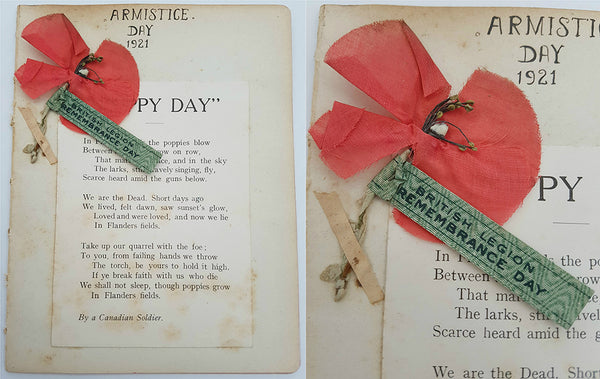 ARMISTICE.
DAY
1921
PPY DAY"
BRITISH LEGION
REMBRANCE DAY
In the poppies blow
Between row on row,
That mark , and in the sky
The larks, still singing, fly,
Scarce heard amid the guns below.
We are the Dead. Short days ago
We lived, felt dawn, saw sunset's glow,
Loved and were loved, and now we lie
In Flanders fields.
Take up our quarrel with the foe;
To you, from failing hands we throw
The torch, be yours to hold it high.
If ye break faith with us who die
We shall not sleep, though poppies grow
In Flanders fields.
By a Canadian Soldier.
ARMISTIC
DAY
1921
PY
BRITISH LEGION
REMEMBRANCE DAY
In the pop
Between row
That mar
The larks, still
Scarce heard amid the g
We are the Dead. Short